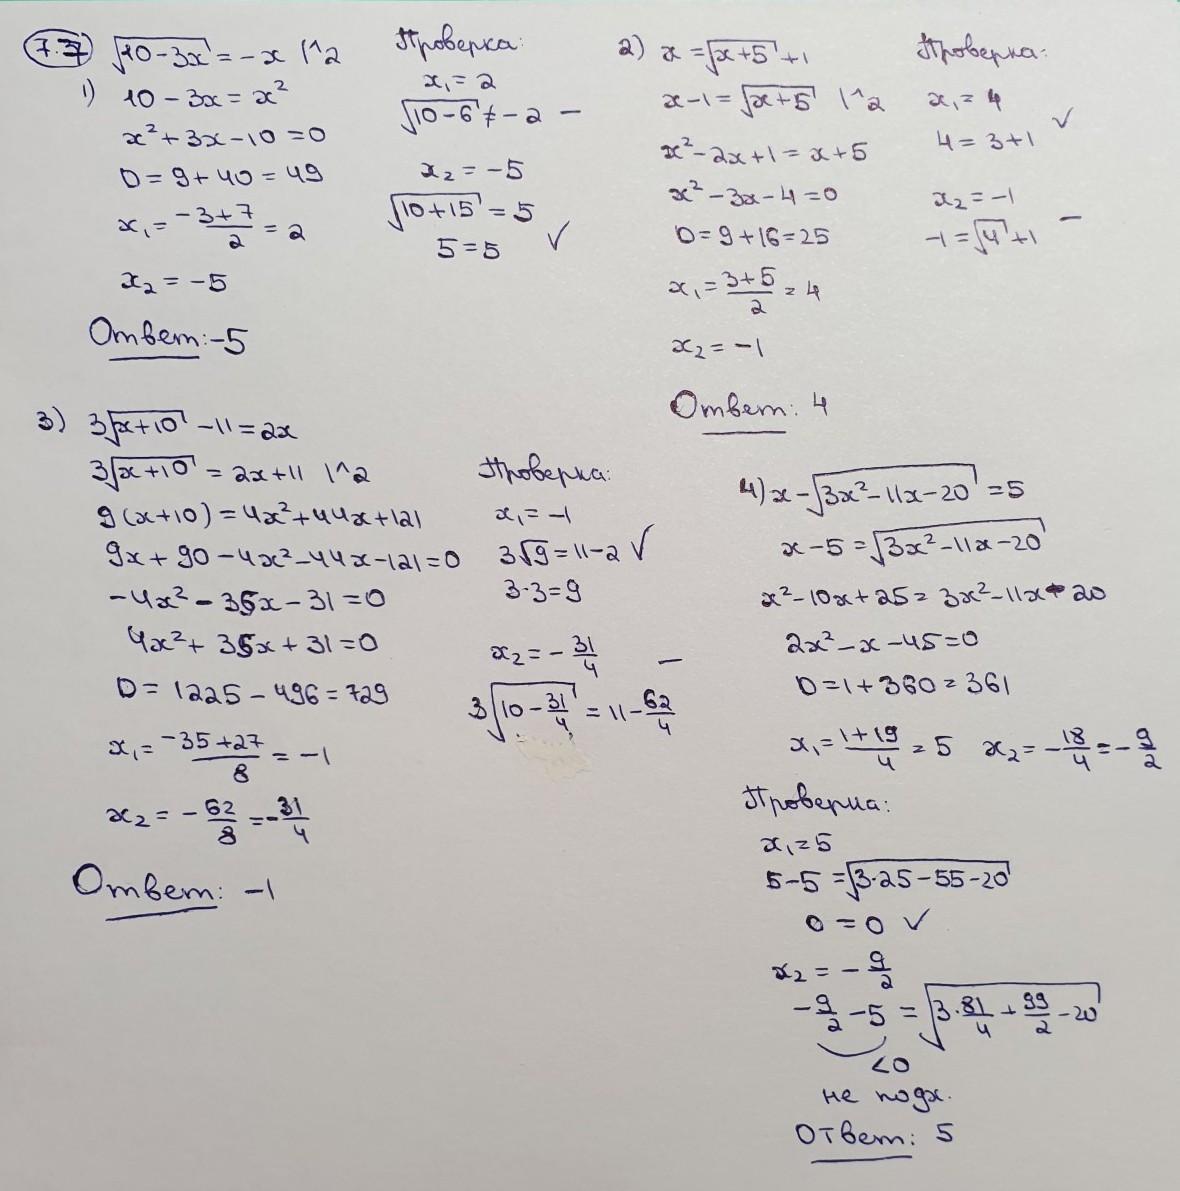 7.37
1) √(10-3x) = -x |^2
10 - 3x = x²
x² + 3x - 10 = 0
D = 9 + 40 = 49
x₁ = (-3+7)/2 = 2
x₂ = -5
Ответ: -5
Проверка:
x₁ = 2
√(10-6) ≠ -2 —
x₂ = -5
√(10+15) = 5
5 = 5 ✓
2) x = √(x+5) + 1
x - 1 = √(x+5) |^2
x² - 2x + 1 = x + 5
x² - 3x - 4 = 0
D = 9 + 16 = 25
x₁ = (3+5)/2 = 4
x₂ = -1
Ответ: 4
Проверка:
x₁ = 4
4 = 3 + 1 ✓
x₂ = -1
-1 = √4 + 1 —
3) 3√(x+10) - 11 = 2x
3√(x+10) = 2x + 11 |^2
9(x+10) = 4x² + 44x + 121
9x + 90 - 4x² - 44x - 121 = 0
-4x² - 35x - 31 = 0
4x² + 35x + 31 = 0
D = 1225 - 496 = 729
x₁ = (-35+27)/8 = -1
x₂ = -62/8 = -31/4
Ответ: -1
Проверка:
x₁ = -1
3√9 = 11 - 2 ✓
3·3 = 9
x₂ = -31/4 —
3√(10 - 31/4) = 11 - 62/4
4) x - √(3x² - 11x - 20) = 5
x - 5 = √(3x² - 11x - 20)
x² - 10x + 25 = 3x² - 11x - 20
2x² - x - 45 = 0
D = 1 + 360 = 361
x₁ = (1+19)/4 = 5 x₂ = -18/4 = -9/2
Проверка:
x₁ = 5
5 - 5 = √(3·25 - 55 - 20)
0 = 0 ✓
x₂ = -9/2
-9/2 - 5 = √(3·81/4 + 99/2 - 20)
<0
не подх.
Ответ: 5